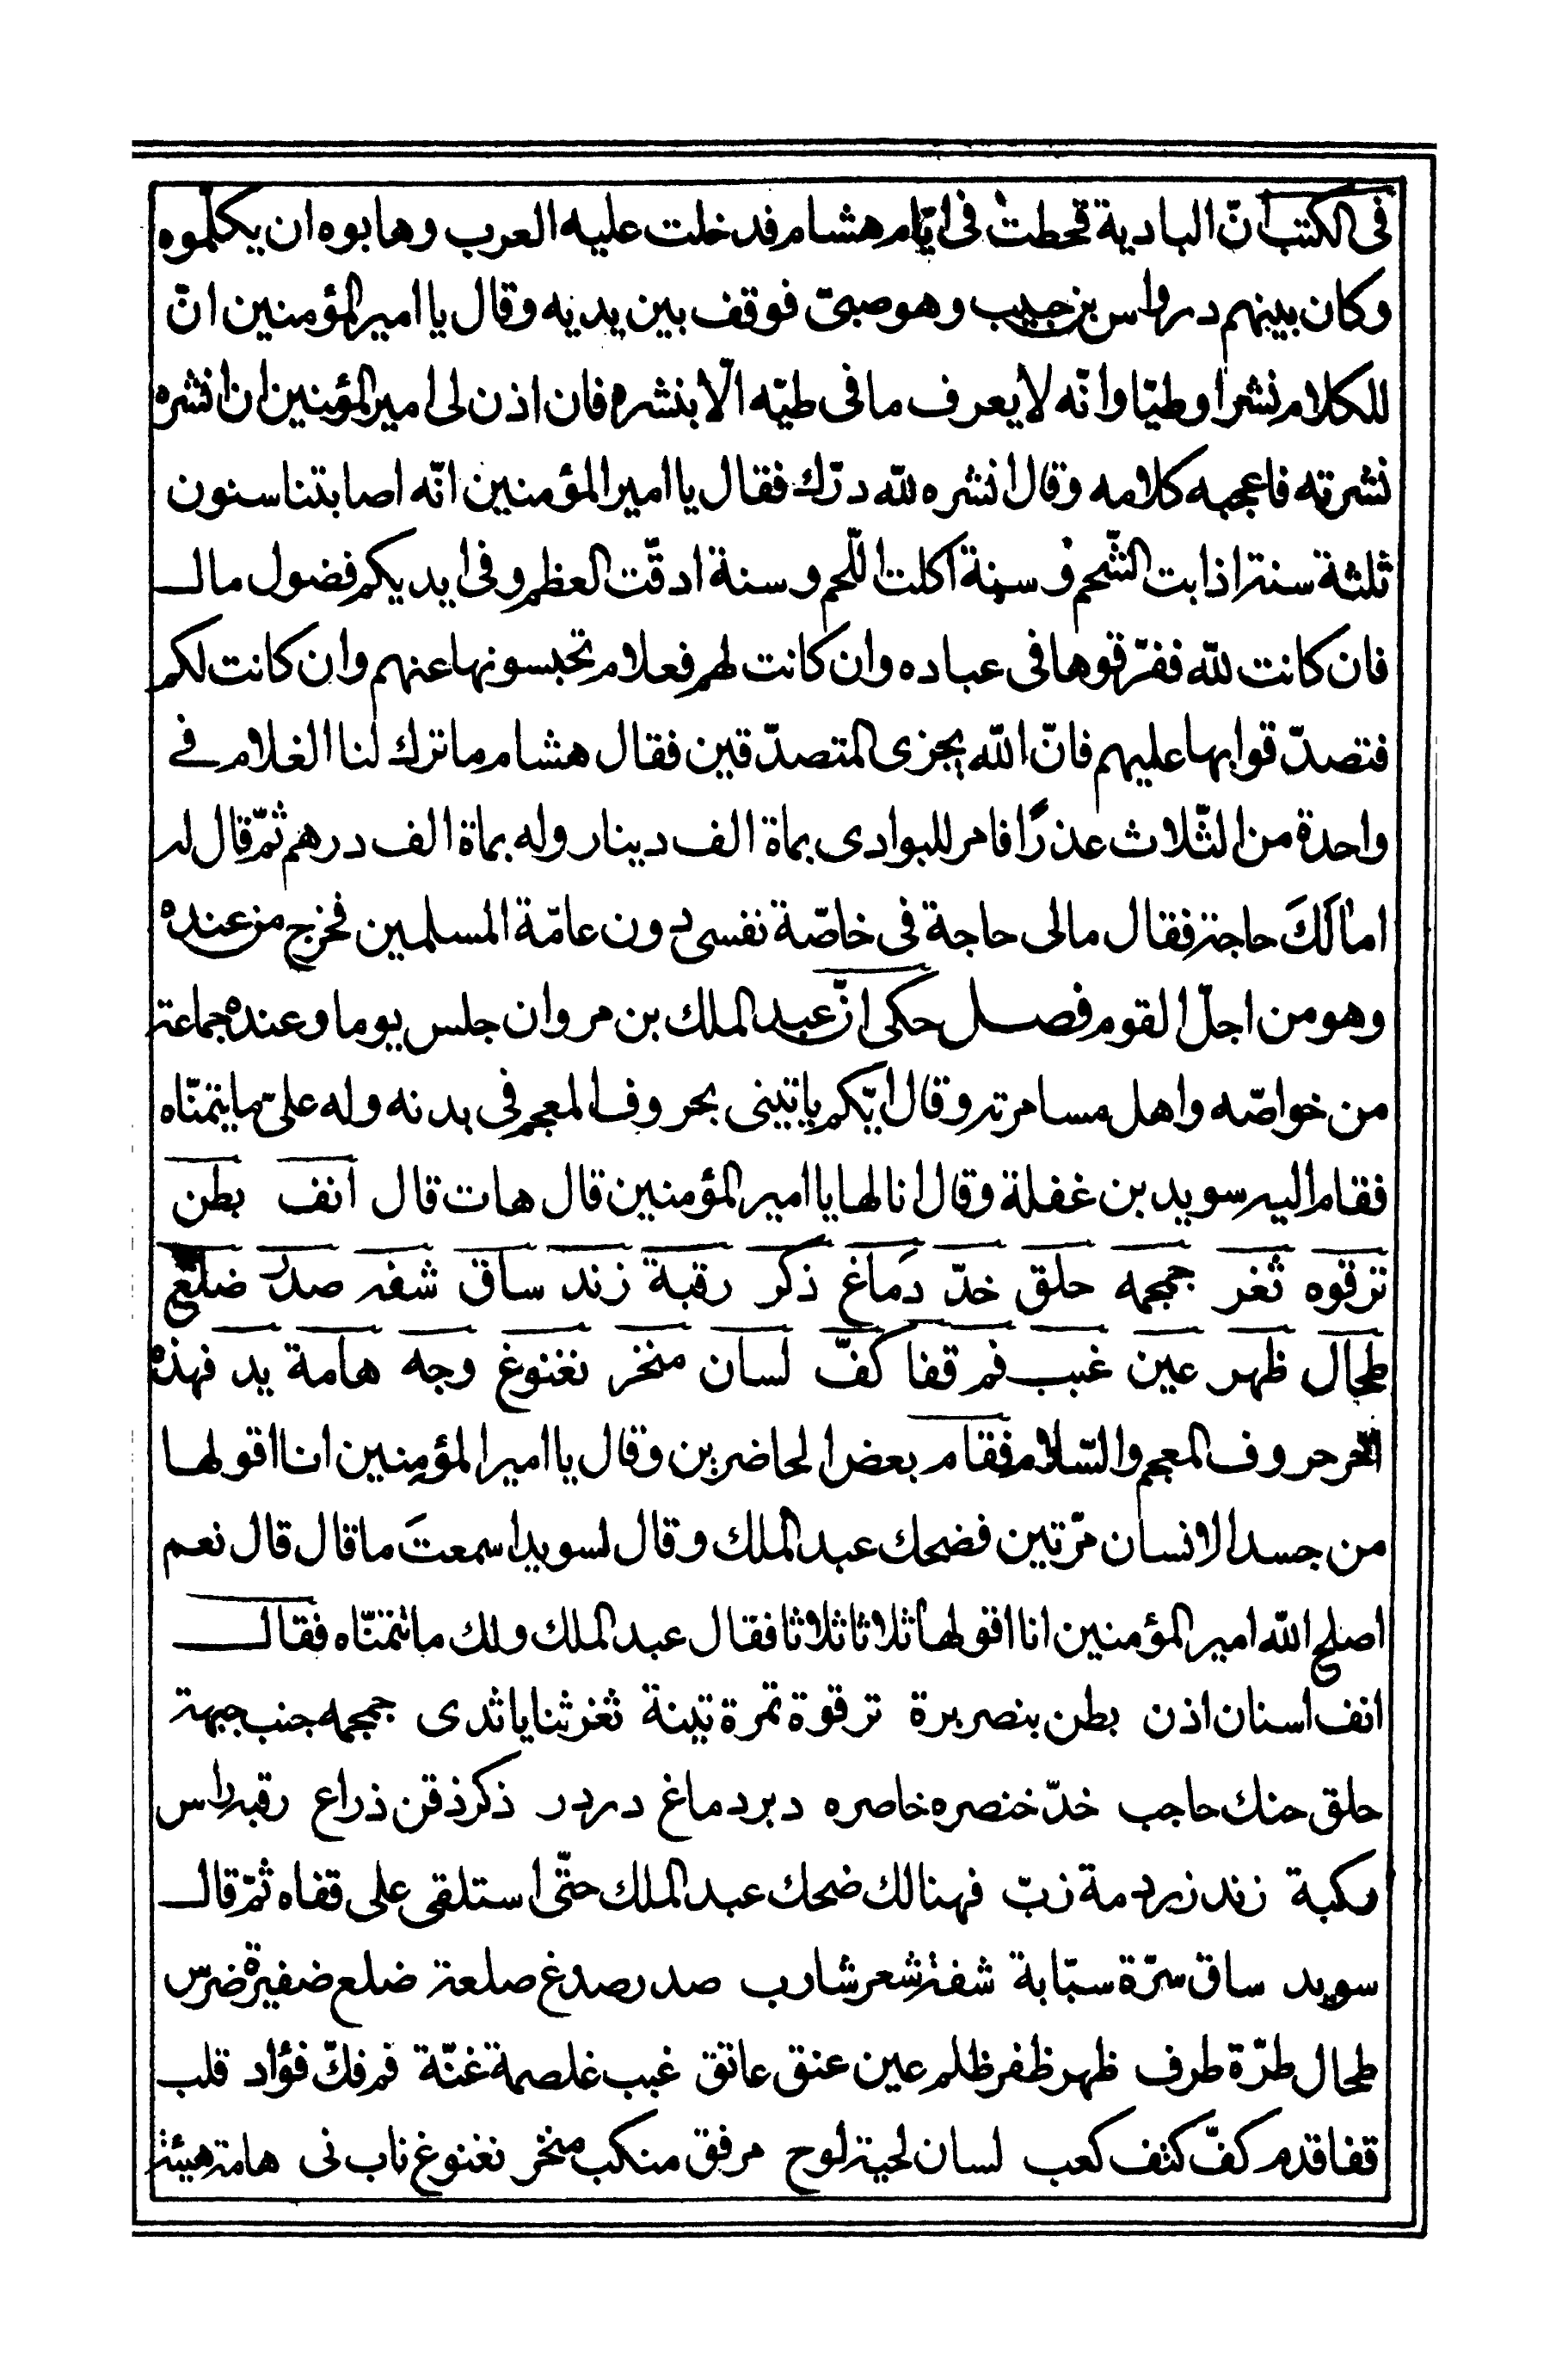 فى الكتب انّ البادية قحطت فى ايّام هشام فدخلت عليه العرب وهابوه ان يكلّموه
وكان بينهم درواس بن حبيب وهو صبىّ فوقف بين يديه وقال يا امير المؤمنين انّ
للكلام نشرا وطيّا وانّه لا يعرف ما فى طيّه الّا بنشره فان اذن لى امير المؤمنين ان انشره
نشرته فاعجبه كلامه وقال انشره لله درّك فقال يا امير المؤمنين انّه اصابتنا سنون
ثلثة سنة اذابت الشّحم و سنة اكلت اللّحم و سنة ادقّت العظم و فى ايديكم فضول مال
فان كانت للّه ففرّقوها فى عباده وان كانت لهم فعلام تحبسونها عنهم وان كانت لكم
فتصدّقوا بها عليهم فانّ اللّه يجزى المتصدّقين فقال هشام ما ترك لنا الغلام فے
واحدة من الثّلاث عذرًا فامر للبوادى بماة الف دينار وله بماة الف درهم ثمّ قال له
اما لَكَ حاجة فقال مالى حاجة فى خاصّة نفسى دون عامّة المسلمين فخرج من عنده
وهو من اجلّ القوم فصل حكى انّ عبد الملك بن مروان جلس يوما وعنده جماعة
من خواصّه واهل مسامرته وقال ايّكم ياتينى بحروف المعجم فى بدنه وله علىّ ما يتمنّاه
فقام اليه سويد بن غفلة وقال انا لها يا امير المؤمنين قال هات قال انف بطن
ترقوه ثغر جمجمه حلق خدّ دماغ ذكر رقبة زند ساق شفه صدر ضلع
طحال ظهر عين غبب فم قفا كفّ لسان منخر نغنوغ وجه هامة يد فهذه
اخر حروف المعجم والسّلام فقام بعض الحاضرين وقال يا امير المؤمنين انا اقولها
من جسد الانسان مرّتين فضحك عبد الملك وقال لسويد اسمعتَ ما قال قال نعم
اصلح اللّه امير المؤمنين انا اقولها ثلاثا ثلاثا فقال عبد الملك ولك ما تتمنّاه فقال
انف اسنان اذن بطن بنصر برة ترقوة تمرة تينة ثغر ثنايا ثدى جمجمه جنب جبهة
حلق حنك حاجب خدّ خنصره خاصره دبر دماغ دردر ذكر ذقن ذراع رقبه راس
ركبة زند زردمة زبّ فهنالك ضحك عبد الملك حتّى استلقى على قفاه ثمّ قال
سويد ساق سرّة سبّابة شفة شعر شارب صدر صدغ صلعة ضلع ضفيرة ضرس
طحال طرّة طرف ظهر ظفر ظلم عين عنق عاتق غبب غلصمة غنّة فم فكّ فؤاد قلب
قفا قدم كفّ كتف كعب لسان لحية لوح مرفق منكب منخر نغنوغ ناب نى هامة هيئة